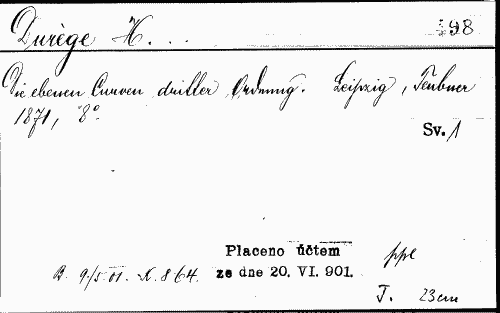 Durège H. . .
98
Die ebenen Curven dritter Ordnung. Leipzig, Teubner
1871, 8°.
Sv. 1
Placeno účtem
ze dne 20. VI. 901.
ppl
B. 9/5 01. K. 864.
T. 23 cm